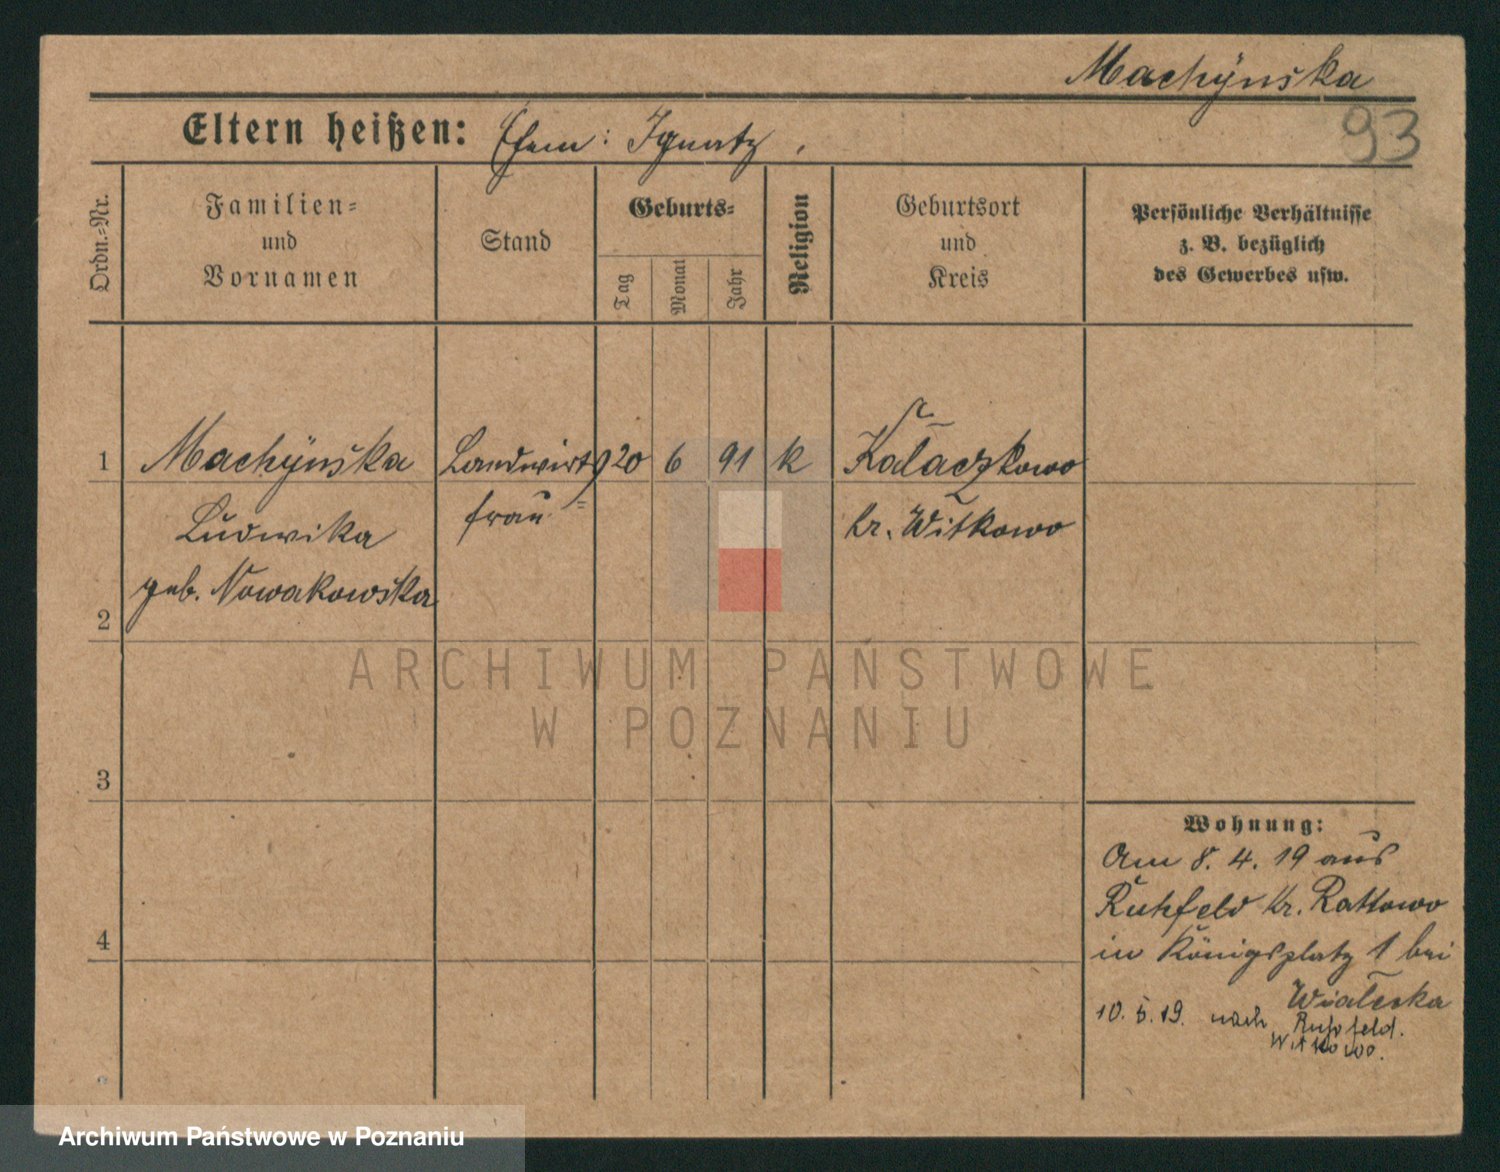 Machÿnska
93
Eltern heißen: Ehem: Ignatz.
Ordn.-Nr.
Familien-
und
Vornamen
Stand
Geburts-
Tag
Monat
Jahr
Religion
Geburtsort
und
Kreis
Persönliche Verhältnisse
z. B. bezüglich
des Gewerbes usw.
1 Machÿnska Landwirts 20 6 91 k Kołaczkowo
Ludwika frau kr. Witkowo
geb. Nowakowska
2
ARCHIWUM PAŃSTWOWE
W POZNANIU
3
Wohnung:
Am 8. 4. 19 aus
Ruhfeld Kr.
4
in Königsplatz 1 bei
10. 5. 19. nach Ruhfeld.
Witkowo.
Archiwum Państwowe w Poznaniu